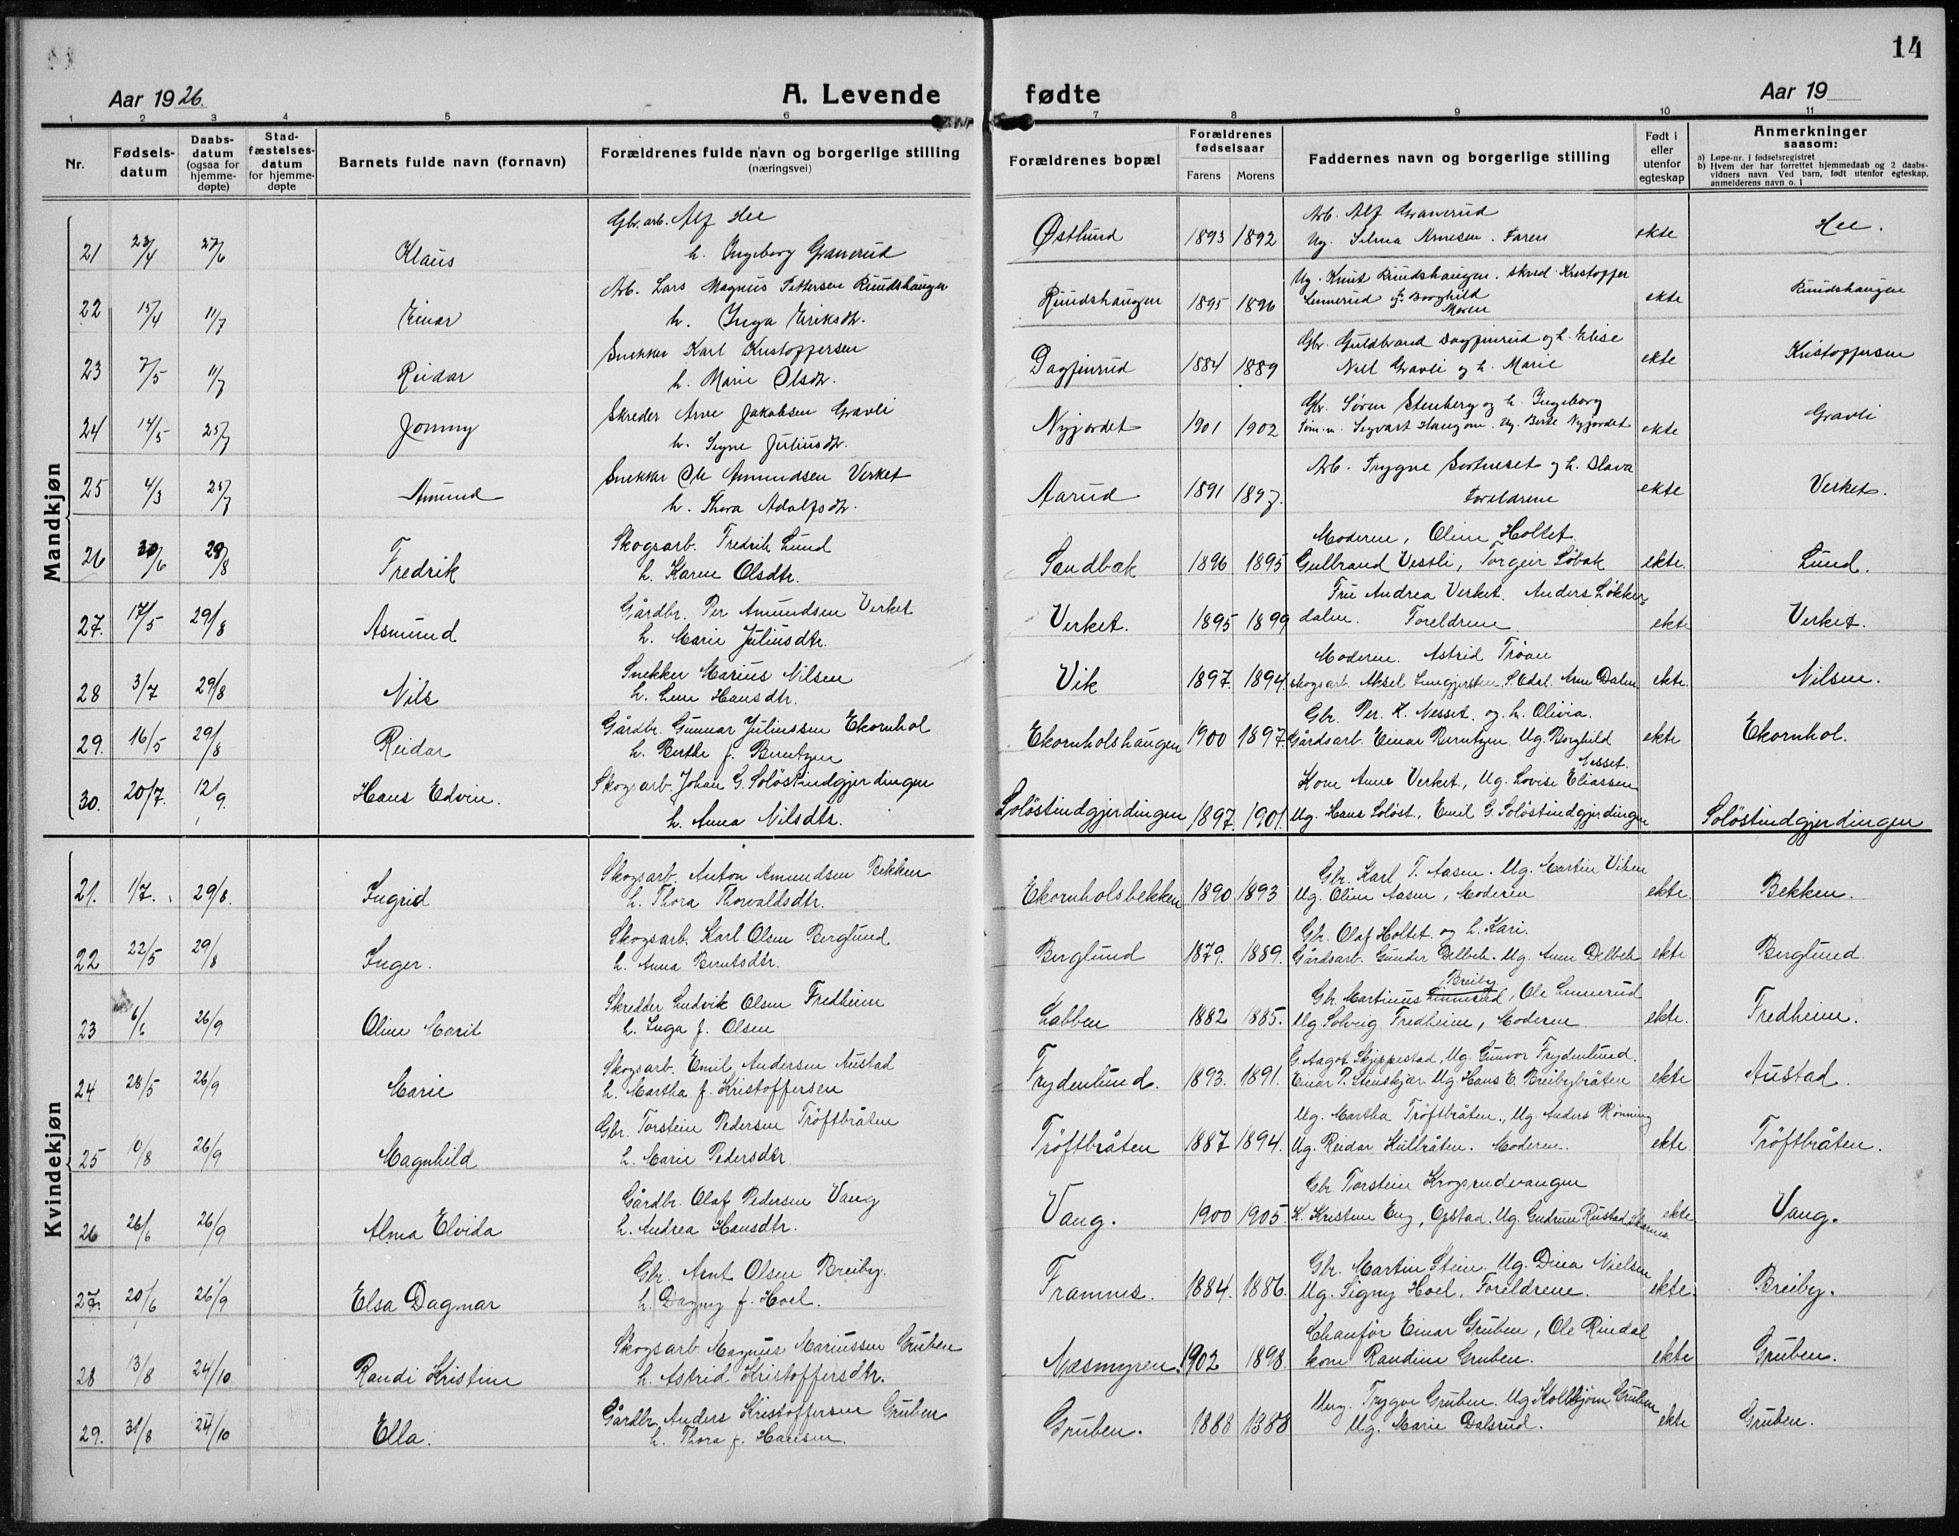 14
Aar 1926. A. Levende fødte Aar 19
1 2 3 4 5 6 7 8 9 10 11
Nr. Fødsels-datum Daabs-datum (ogsaa for hjemme-døpte) Stad-fæstelses-datum for hjemme-døpte Barnets fulde navn (fornavn) Forældrenes fulde navn og borgerlige stilling (næringsvei) Forældrenes bopæl Forældrenes fødselsaar Farens Morens Faddernes navn og borgerlige stilling Født i eller utenfor egteskap Anmerkninger saasom:
a) Løpe-nr. i fødselsregistret
b) Hvem der har forrettet hjemmedaab og 2 daabs-vidners navn. Ved barn, født utenfor egteskap, anmelderens navn o. l
Mandkjøn
Gbr. arb. Alf Hee Arb. Alf Granerud
21 23/4 27/6 Klaus h. Ingeborg Granerud Østlund 1893 1892 Ug. Selma Arnesen. Faren ekte Hee.
Arb. Lars Magnus Pettersen Rundshaugen Ug. Knut Rundshaugen. Skred. Kristoffer
22 15/4 11/7 Einar h. Inga Eriksdtr. Rundshaugen 1895 1896 Linnerud g. Borghild Moren ekte Rundshaugen
Snekker Karl Kristoffersen Gbr. Guldbrand Dagfinrud og h. Elise
23 7/5 11/7 Reidar h. Marie Olsdtr. Dagfinrud 1884 1889 Nils Gravli og h. Marie ekte Kristoffersen
Skreder Arne Jakobsen Gravli Gbr. Søren Stenberg og h. Ingeborg
24 14/5 25/7 Jonny h. Signe Juliusdtr. Nyjordet 1901 1902 Tøm.m. Sigvart Haugom. Ug. Berte Nyjordet ekte Gravli
Snekker Ole Amundsen Verket Arb. Trygve Svotneset og h. Slava
25 4/3 25/7 Amund h. Thora Adolfsdtr. Aarud 1891 1897. Foreldrene ekte Verket.
Skogsarb. Fredrik Lund Moderen, Oline Holtet
26 30/6 29/8 Fredrik h. Karen Olsdtr. Sandbak 1896 1895 Gulbrand Vestli, Torgeir Løbak ekte. Lund.
Gårdbr. Per Amundsen Verket Fru Andrea Verket. Anders Løkker-
27. 17/5 29/8 Asmund h. Marie Juliusdtr. Verket. 1895 1899 dalen. Foreldrene ekte Verket.
Snekker Marius Nilsen Moderen. Astrid Trøan
28 3/7 29/8 Nils h. Lene Hansdtr. Vik 1897. 1894. Skogsarb. Aksel Lungjersten, S. Odal. Arne Dalen ekte. Nilsen.
Gårdbr. Gunnar Juliussen Ekornhol Gbr. Per K. Nesset. og h. Olivia.
29. 16/5 29/8 Reidar h. Berthe f. Berntzen Ekornholshaugen 1900 1897. Gårdsarb. Einar Berntzen Ug. Borghild Nesset. ekte Ekornhol.
Skogsarb. Johan G. Soløstindgjerdingen Kone Anne Verket., Ug. Lovise Eliassen
30. 20/7. 12/9. Hans Edvin. h. Anna Nilsdtr. Soløstindgjerdingen 1897. 1901. Ug. Hans Soløst., Emil G. Soløstindgjerdingen Soløstindgjerdingen
Kvindekjøn
Skogsarb. Anton Amundsen Bekken Gbr. Karl T. Aasen. Ug. Martin Viken
21. 1/7. 29/8. Ingrid h. Thora Thorvaldsdtr. Ekornholsbekken 1890 1893 Ug. Oline Aasen, Moderen ekte Bekken.
Skogsarb. Karl Olsen Berglund Gbr. Olaf Holtet. og h. Kari.
22 22/5 29/8 Inger. h. Anna Berntsdtr. Berglund 1879. 1889. Gårdsarb. Gunder Delbek. Ug. Anne Delbek ekte Berglund.
Skredder Ludvik Olsen Fredheim Gbr. Martinus Linnerud Breiby, Ole Linnerud
23 6/6 26/9 Oline Marit h. Inga f. Olsen Labben 1882 1885. Ug Solveig Fredheim, Moderen ekte. Fredheim.
Skogsarb. Emil Andersen Austad G. Aagot Skjeppestad, Ug. Gunvor Frydenlund.
24 28/5 26/9 Marie h. Martha f. Kristoffersen Frydenlund. 1893. 1891. Einar P. Stenskjær. Ug. Hans E. Breibybråten ekte Austad.
Gbr. Torstein Pedersen Trøftbråten Ug. Martha Trøftbråten., Ug. Anders Rønning
25 10/8 26/9 Magnhild h. Marie Pedersdtr Trøftbråten 1887 1894. Ug. Reidar Kulbråten. Moderen. ekte Trøftbråten.
Gårdbr. Olaf Pedersen Vang Gbr. Torstein Krogsrudvangen
26 26/6 26/9 Alma Elvida h. Andrea Hansdtr. Vang. 1900 1905. K. Kristine Eng, Opstad. Ug. Gudrun Rustad, Skarnes ekte Vang.
Gbr. Arnt Olsen Breiby. Gbr. Martin Stein. Ug. Dina Nielsen
27. 20/6 26/9 Elsa Dagmar h. Dagny f. Hoel. Framnes. 1884. 1886. Ug. Signy Hoel, Foreldrene. ekte. Breiby.
Skogsarb. Magnus Mariussen Gruben Chauför Einar Gruben, Ole Rindal
28 13/8 24/10 Randi Kristine h. Astrid Kristoffersdtr. Næsmyren. 1902 1898. kone Randine Gruben. ekte Gruben.
Gårdbr. Anders Kristoffersen Gruben Ung. Trygve Gruben. Ug Kolbjørn Gruben
29. 31/8 24/10 Ella. h. Thora f. Hansen. Gruben. 1888 1888 Ug. Marie Dalsrud. ekte Gruben.